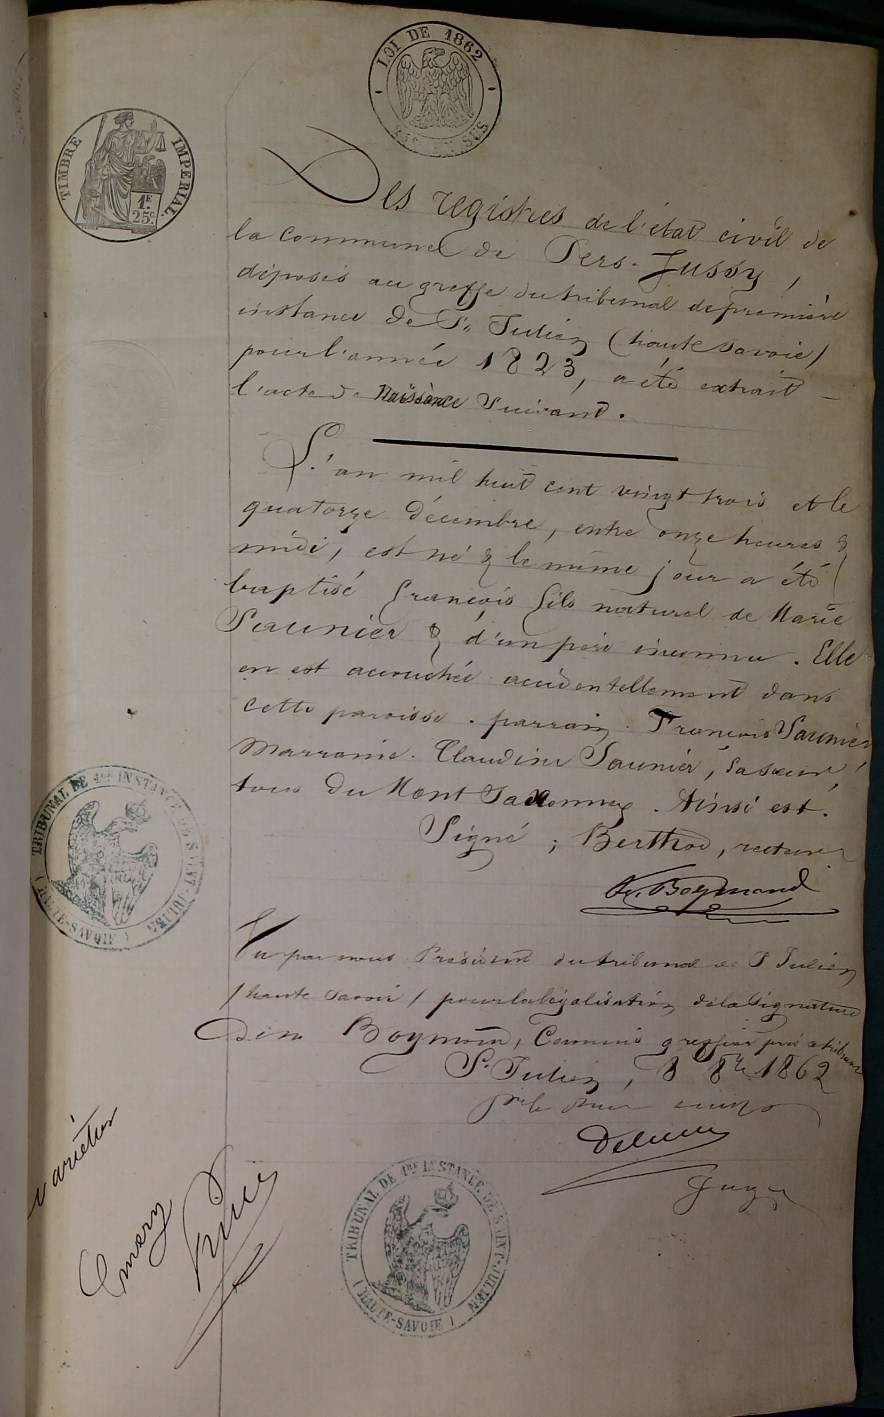 LOI DE 1862
2 5E EN SUS
TIMBRE IMPERIAL.
1F
25c
Des registres de l'état civil de
la commune de Pers-Jussy,
déposés au greffe du tribunal de première
instance de St Julien (haute Savoie)
pour l'année 1823, a été extrait
l'acte de Naissance Suivant.
L'an mil huit cent vingt trois et le
quatorze décembre, entre onze heures &
midi, est né & le même jour a été
baptisé François fils naturel de Marie
Saunier & d'un père inconnu. Elle
en est accouchée accidentellement dans
cette paroisse. parrain François Saunier
Marraine. Claudine Saunier, sa sœur
tous du Mont Saxonnex. Ainsi est.
Signé; Berthod, recteur
Boymond
TRIBUNAL DE 1ERE INSTANCE DE SAINT-JULIEN
(HAUTE-SAVOIE)
Vu par nous Président du tribunal de St Julien
(haute Savoie) pour la légalisation de la Signature
Boymond, Commis greffier près ce tribunal
St Julien, 8 8bre 1862
Juge
varietur
TRIBUNAL DE 1RE INSTANCE DE SAINT-JULIEN
(HAUTE-SAVOIE)